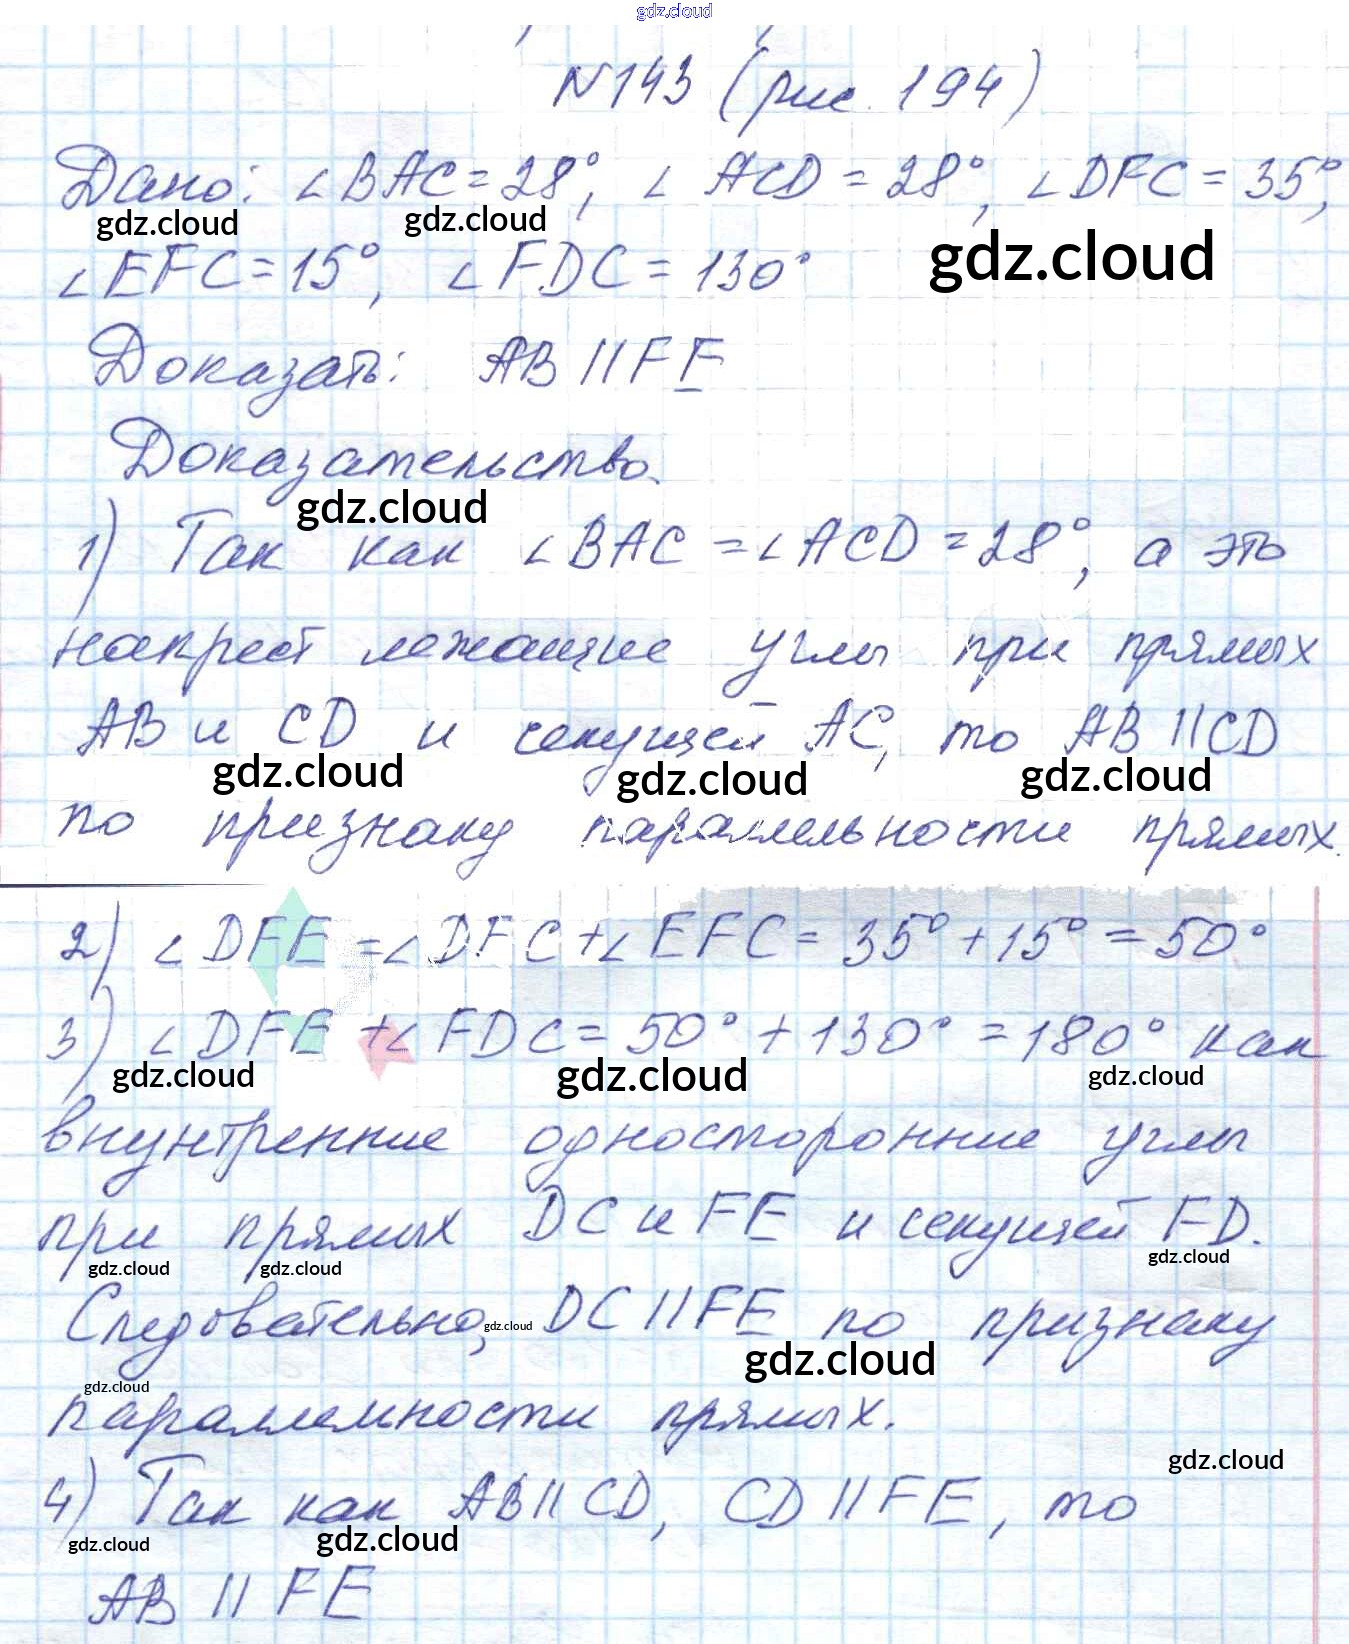 gdz.cloud
№143 (рис. 194)
Дано: ∠BAC = 28°, ∠ACD = 28°, ∠DFC = 35°,
gdz.cloud gdz.cloud
∠EFC = 15°, ∠FDC = 130° gdz.cloud
Доказать: AB || FE
Доказательство.
gdz.cloud
1) Так как ∠BAC = ∠ACD = 28°, а это
накрест лежащие углы при прямых
AB и CD и секущей AC, то AB || CD
gdz.cloud gdz.cloud gdz.cloud
по признаку параллельности прямых.
2) ∠DFE = ∠DFC + ∠EFC = 35° + 15° = 50°
3) ∠DFE + ∠FDC = 50° + 130° = 180° как
gdz.cloud gdz.cloud gdz.cloud
внутренние односторонние углы
при прямых DC и FE и секущей FD.
gdz.cloud gdz.cloud gdz.cloud
Следовательно, gdz.cloud DC || FE по признаку
gdz.cloud
gdz.cloud
параллельности прямых.
gdz.cloud
4) Так как AB || CD, CD || FE, то
gdz.cloud gdz.cloud
AB || FE